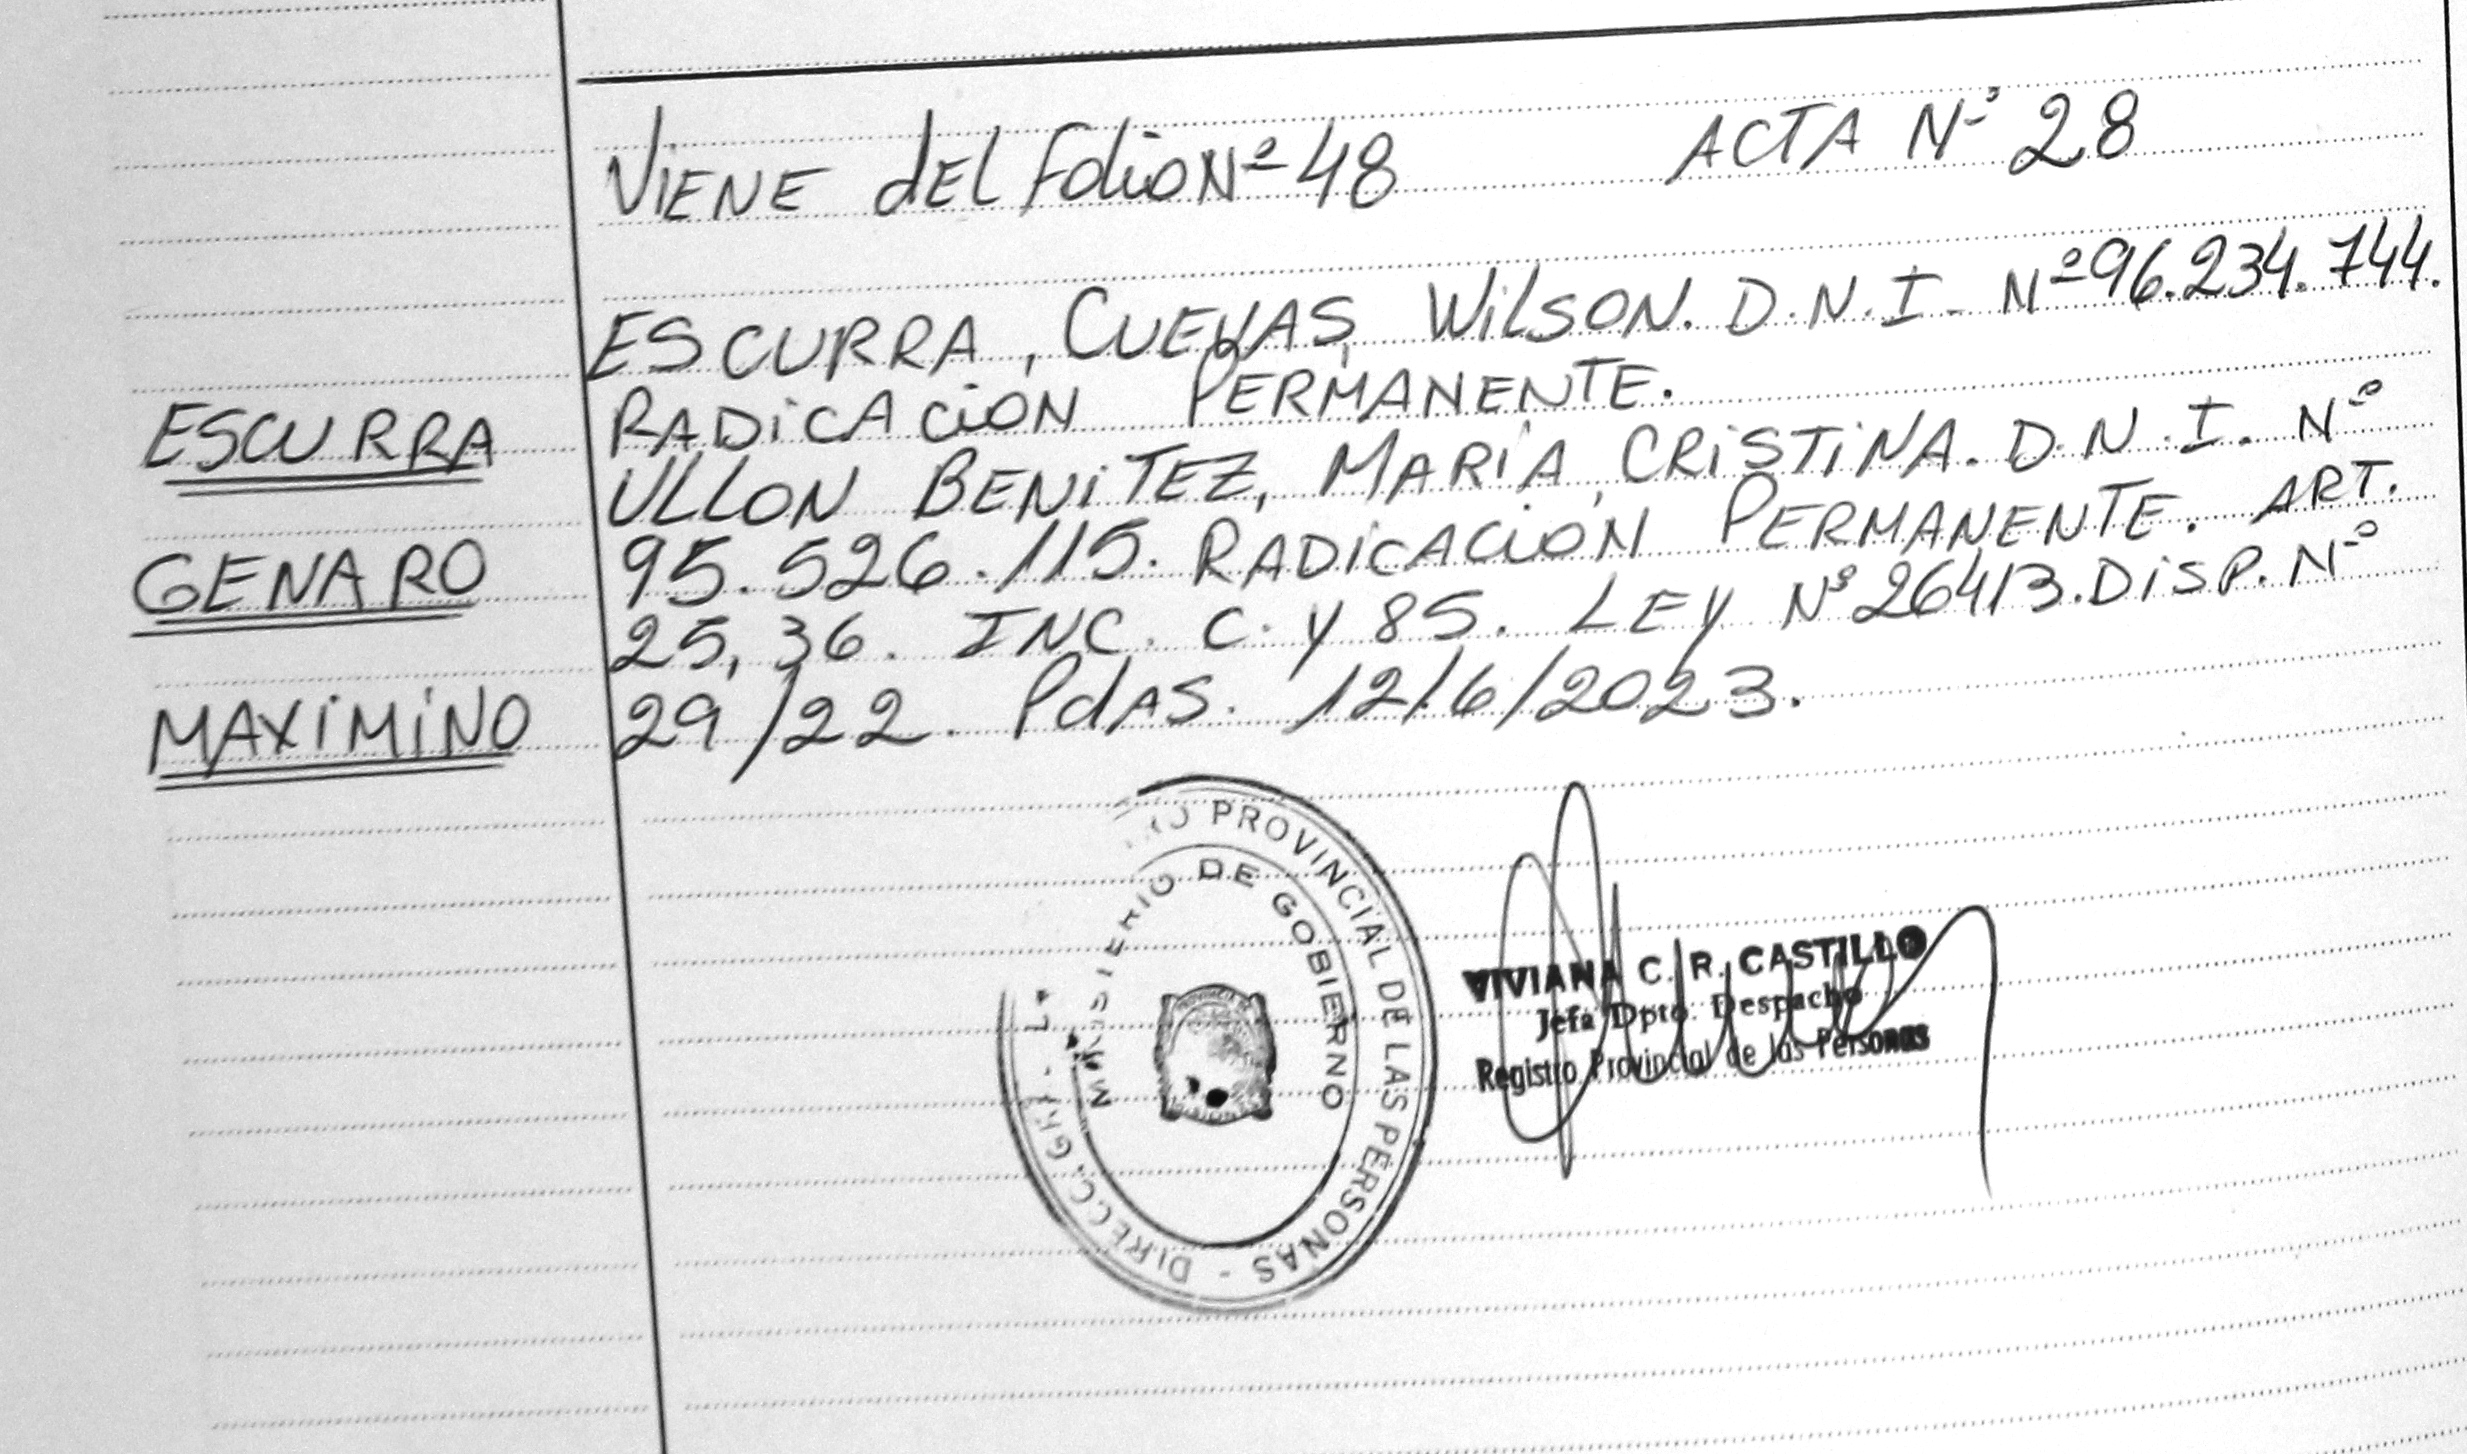 VIENE dEL Folio Nº 48 ACTA Nº 28
ESCURRA, CUEVAS, WILSON. D.N.I. Nº 96.234.744.
RADICACION PERMANENTE.
ULLON BENITEZ, MARÍA, CRISTINA. D.N.I. Nº
95.526.115. RADICACION PERMANENTE. ART.
25, 36. INC. C. y 85. LEY Nº 26413. DISP. Nº
29/22. PdAS. 12/6/2023.
ESCURRA
GENARO
MAXIMINO
PROVINCIAL DE LAS PERSONAS - DIRECC. GRAL.
MINISTERIO DE GOBIERNO
VIVIANA C. R. CASTILLO
Jefa Dpto. Despacho
Registro Provincial de las Personas